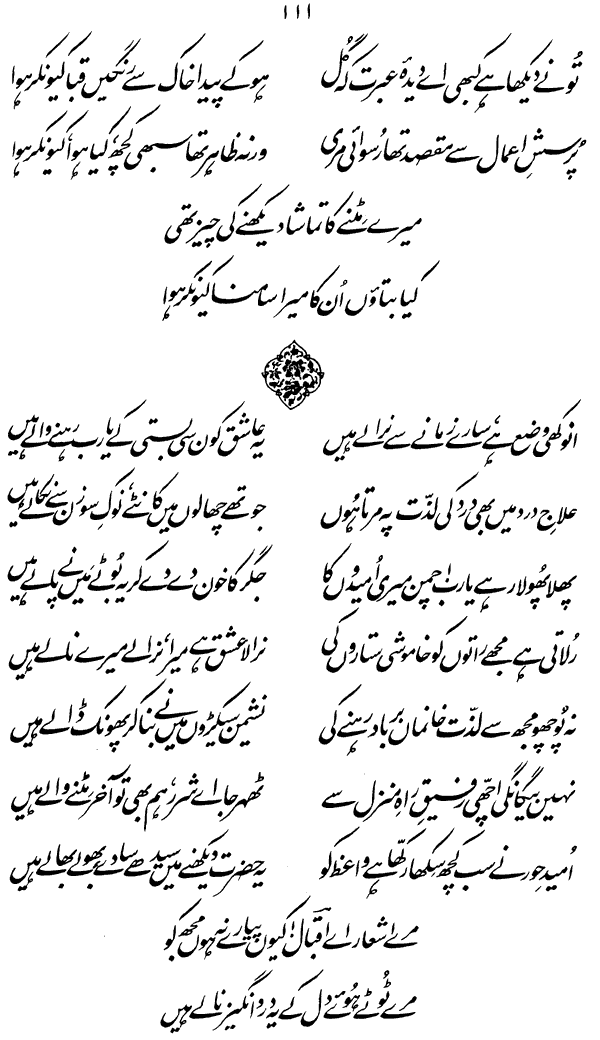 ۱۱۱
تُو نے دیکھا ہے کبھی اے دیدۂ عبرت کہ گُل ہو کے پیدا خاک سے رنگیں قبا کیونکر ہوا
پُرسشِ اعمال سے مقصد تھا رُسوائی مری ورنہ ظاہر تھا سبھی کچھ، کیا ہوا، کیونکر ہوا
میرے مِٹنے کا تماشا دیکھنے کی چیز تھی
کیا بتاؤں اُن کا میرا سامنا کیونکر ہوا
انوکھی وضع ہے، سارے زمانے سے نرالے ہیں یہ عاشق کون سی بستی کے یا رب رہنے والے ہیں
علاجِ درد میں بھی درد کی لذّت پہ مرتا ہُوں جو تھے چھالوں میں کانٹے، نوکِ سوزن سے نکالے ہیں
پھلا پھُولا رہے یا رب! چمن میری اُمیدوں کا جگر کا خون دے دے کر یہ بُوٹے مَیں نے پالے ہیں
رُلاتی ہے مجھے راتوں کو خاموشی ستاروں کی نرالا عشق ہے میرا، نرالے میرے نالے ہیں
نہ پُوچھو مجھ سے لذّت خانماں برباد رہنے کی نشیمن سیکڑوں مَیں نے بنا کر پھُونک ڈالے ہیں
نہیں بیگانگی اچھّی رفیقِ راہِ منزل سے ٹھہر جا اے شرر، ہم بھی تو آخر مِٹنے والے ہیں
اُمیدِ حور نے سب کچھ سِکھا رکھّا ہے واعظ کو یہ حضرت دیکھنے میں سیدھے سادے، بھولے بھالے ہیں
مرے اشعار اے اقبالؔ! کیوں پیارے نہ ہوں مجھ کو
مرے ٹُوٹے ہُوئے دل کے یہ درد انگیز نالے ہیں